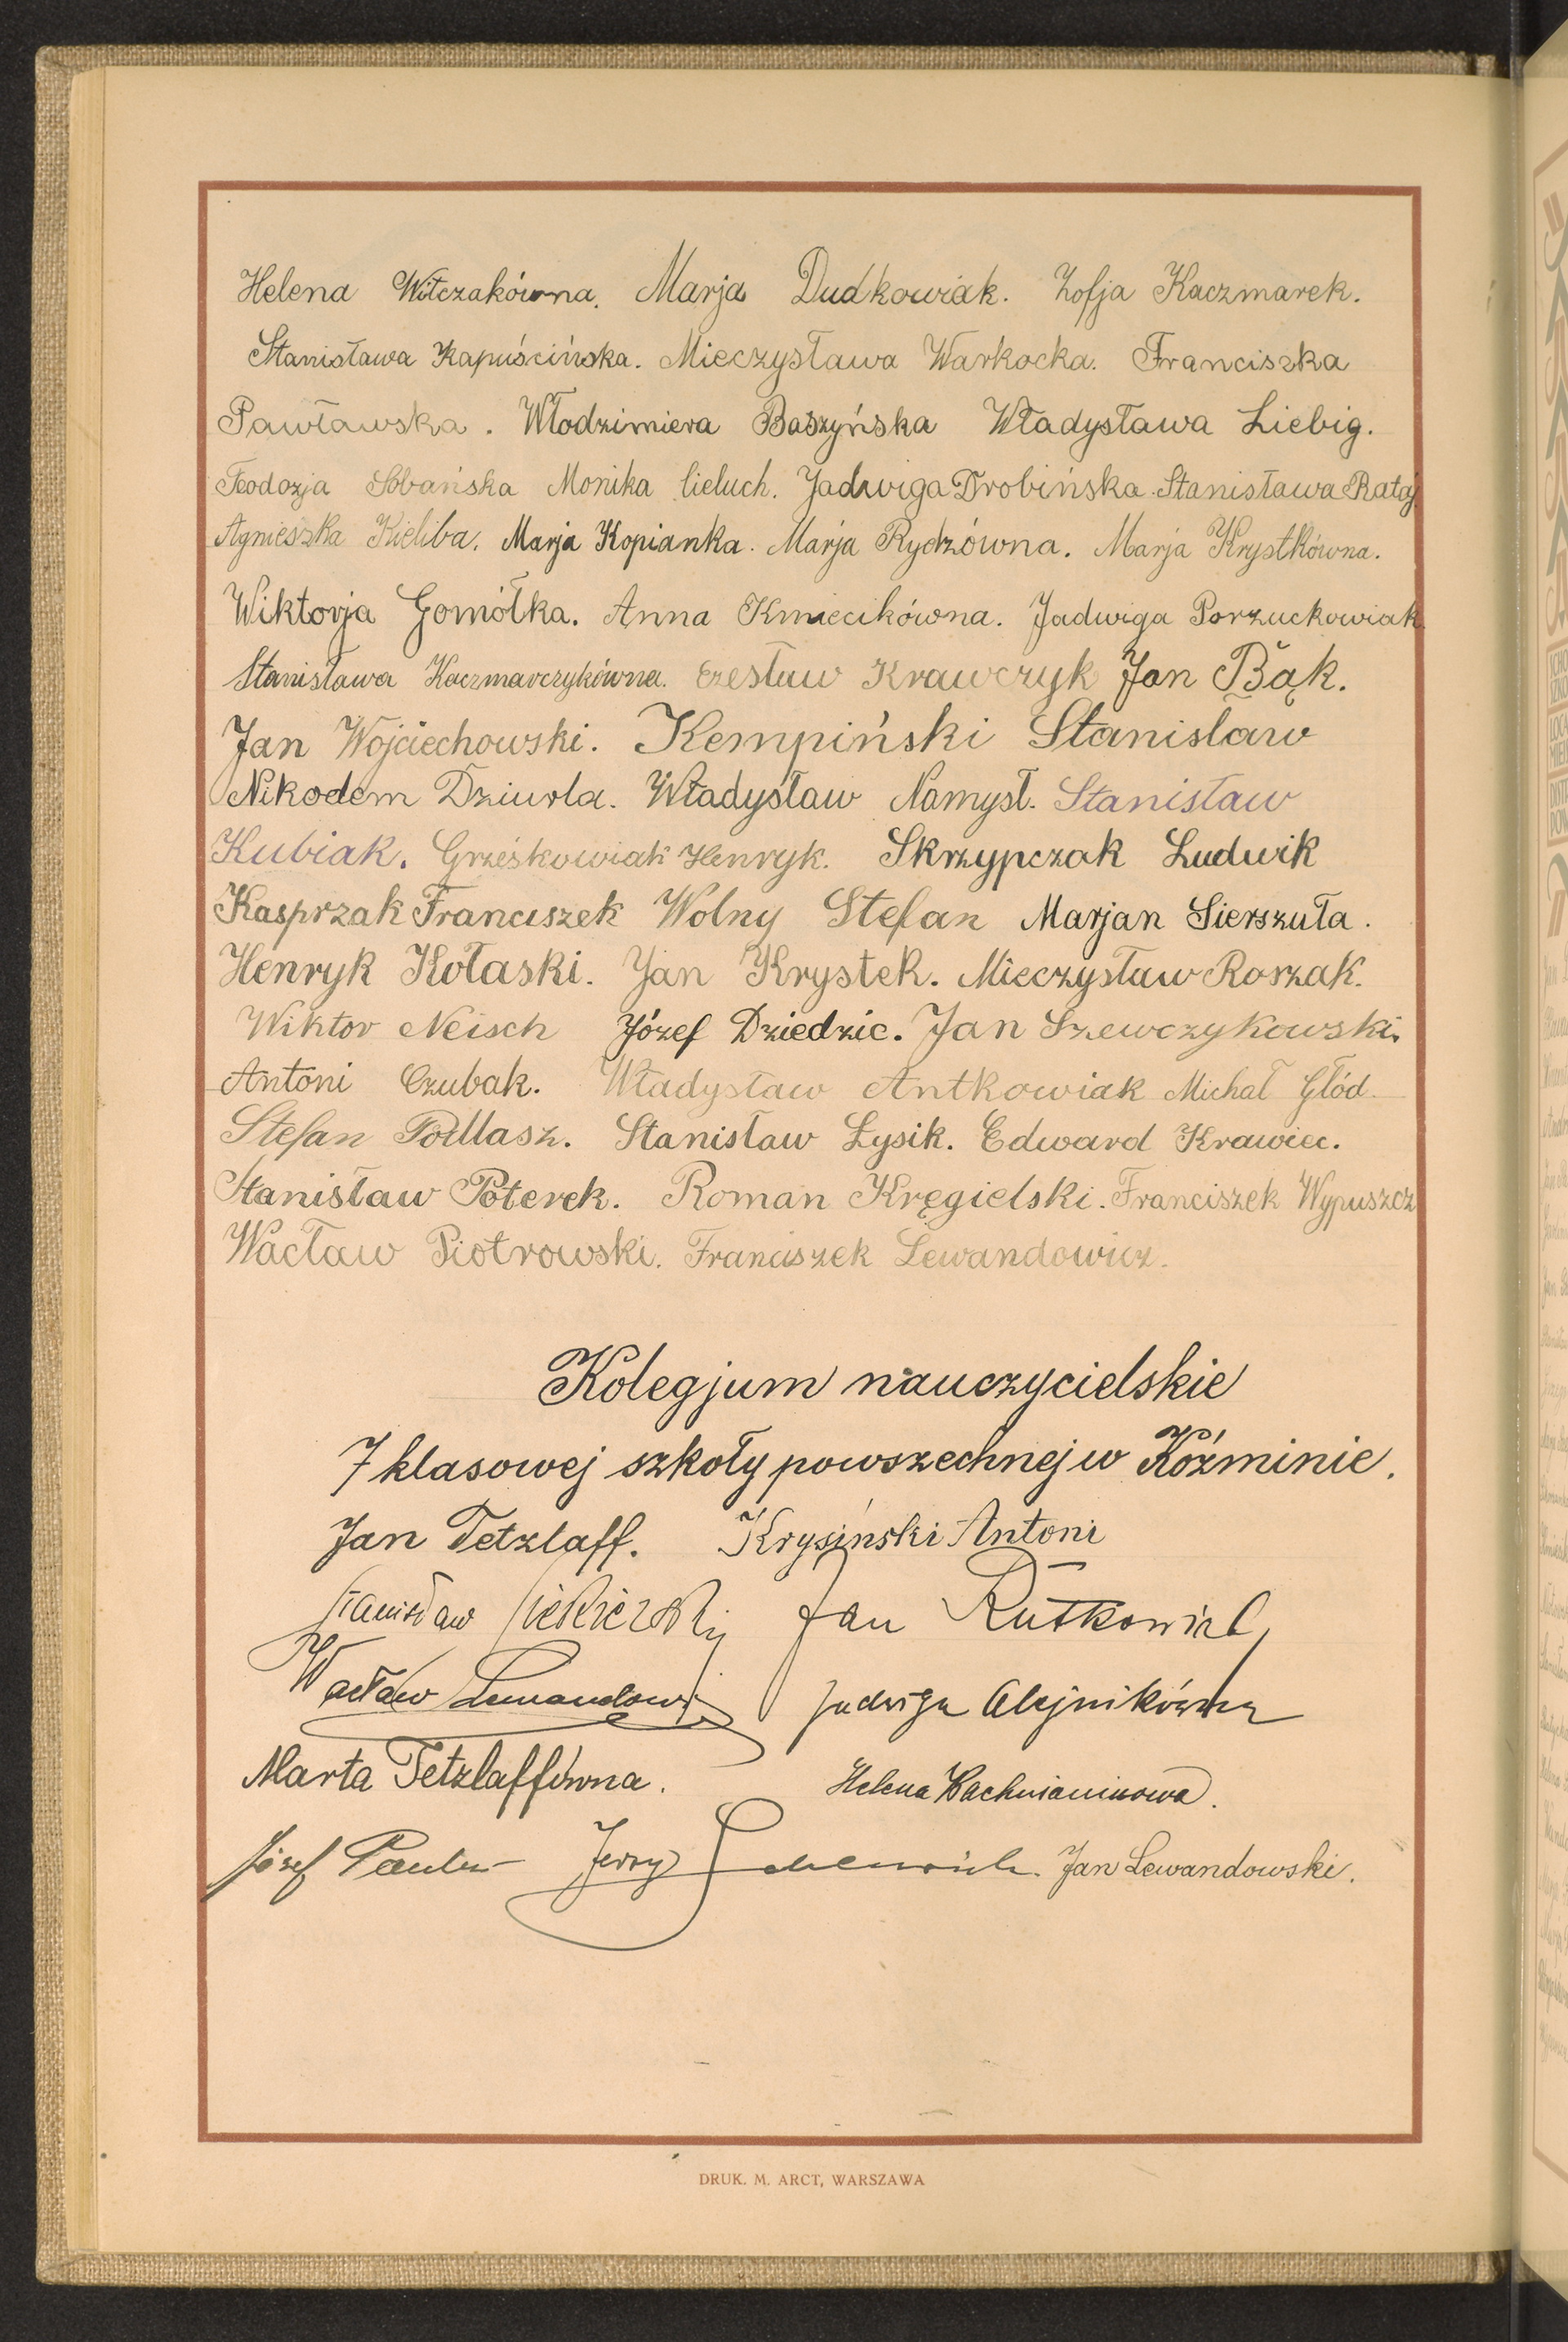 Helena Witczakówna. Marja Dudkowiak. Zofja Kaczmarek.
Stanisława Kapuścińska. Mieczysława Warkocka. Franciszka
Pawławska. Włodzimiera Baszyńska Władysława Liebig.
Teodozja Sobańska Monika Cieluch. Jadwiga Drobińska. Stanisława Rataj
Agnieszka Kieliba. Marja Kopianka. Marja Rydzówna. Marja Krystkówna.
Wiktorja Gomółka. Anna Kmiecikówna. Jadwiga Porzuckowiak
Stanisława Kaczmarczykówna. Czesław Krawczyk Jan Bąk.
Jan Wojciechowski. Kempiński Stanisław
Nikodem Dziurla. Władysław Namysł. Stanisław
Kubiak. Grześkowiak Henryk. Skrzypczak Ludwik
Kasprzak Franciszek Wolny Stefan Marjan Sierszuła.
Henryk Kołaski. Jan Krystek. Mieczysław Roszak.
Wiktor Neisch Józef Dziedzic. Jan Szewczykowski.
Antoni Czubak. Władysław Antkowiak Michał Głód.
Stefan Podlasz. Stanisław Łysik. Edward Krawiec.
Stanisław Poterek. Roman Kręgielski. Franciszek Wypuszcz
Wacław Piotrowski. Franciszek Lewandowicz.
Kolegjum nauczycielskie
7 klasowej szkoły powszechnej w Koźminie.
Jan Tetzlaff. Krysiński Antoni
Stanisław Jan Rutkowiak
Wacław Jadwiga Olejnikówna
Marta Tetzlaffówna. Helena Bachmianinowa.
Józef Jerzy Jan Lewandowski.
DRUK. M. ARCT, WARSZAWA